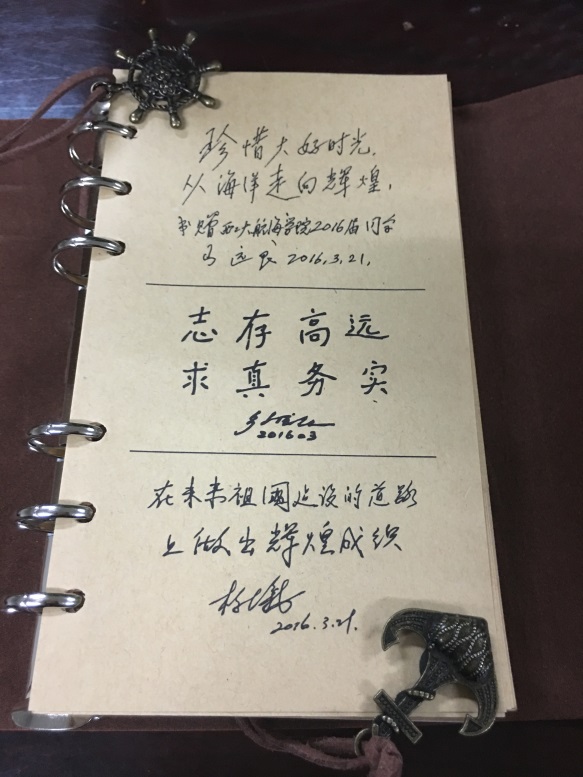 珍惜大好时光,
从海洋走向辉煌,
书赠西工大航海学院2016届同学
马远良 2016.3.21,
志存高远
求真务实
201603
在未来祖国建设的道路
上做出辉煌成绩
2016.3.21.